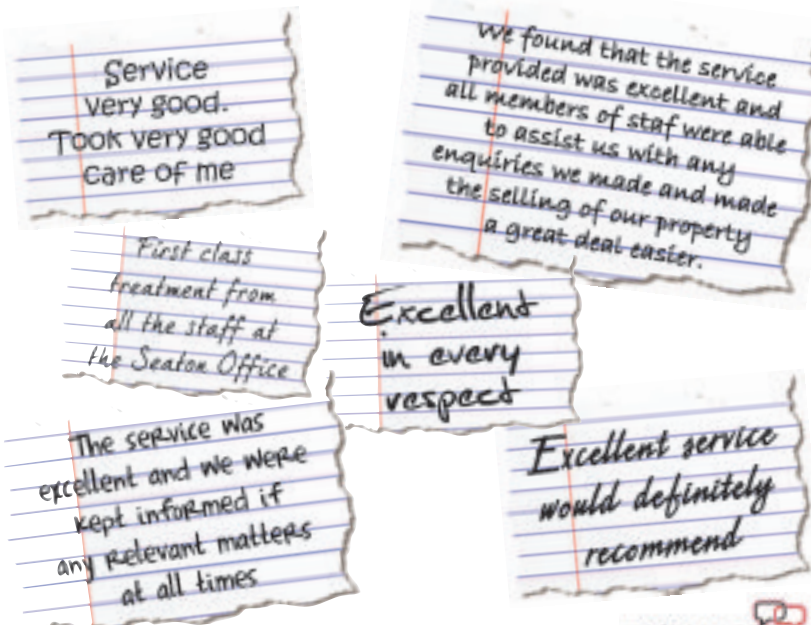 Service
very good.
Took very good
care of me
We found that the service
provided was excellent and
all members of staf were able
to assist us with any
enquiries we made and made
the selling of our property
a great deal easier.
First class
treatment from
all the staff at
the Seaton Office
Excellent
in every
respect
The service was
excellent and we were
kept informed if
any relevant matters
at all times
Excellent service
would definitely
recommend